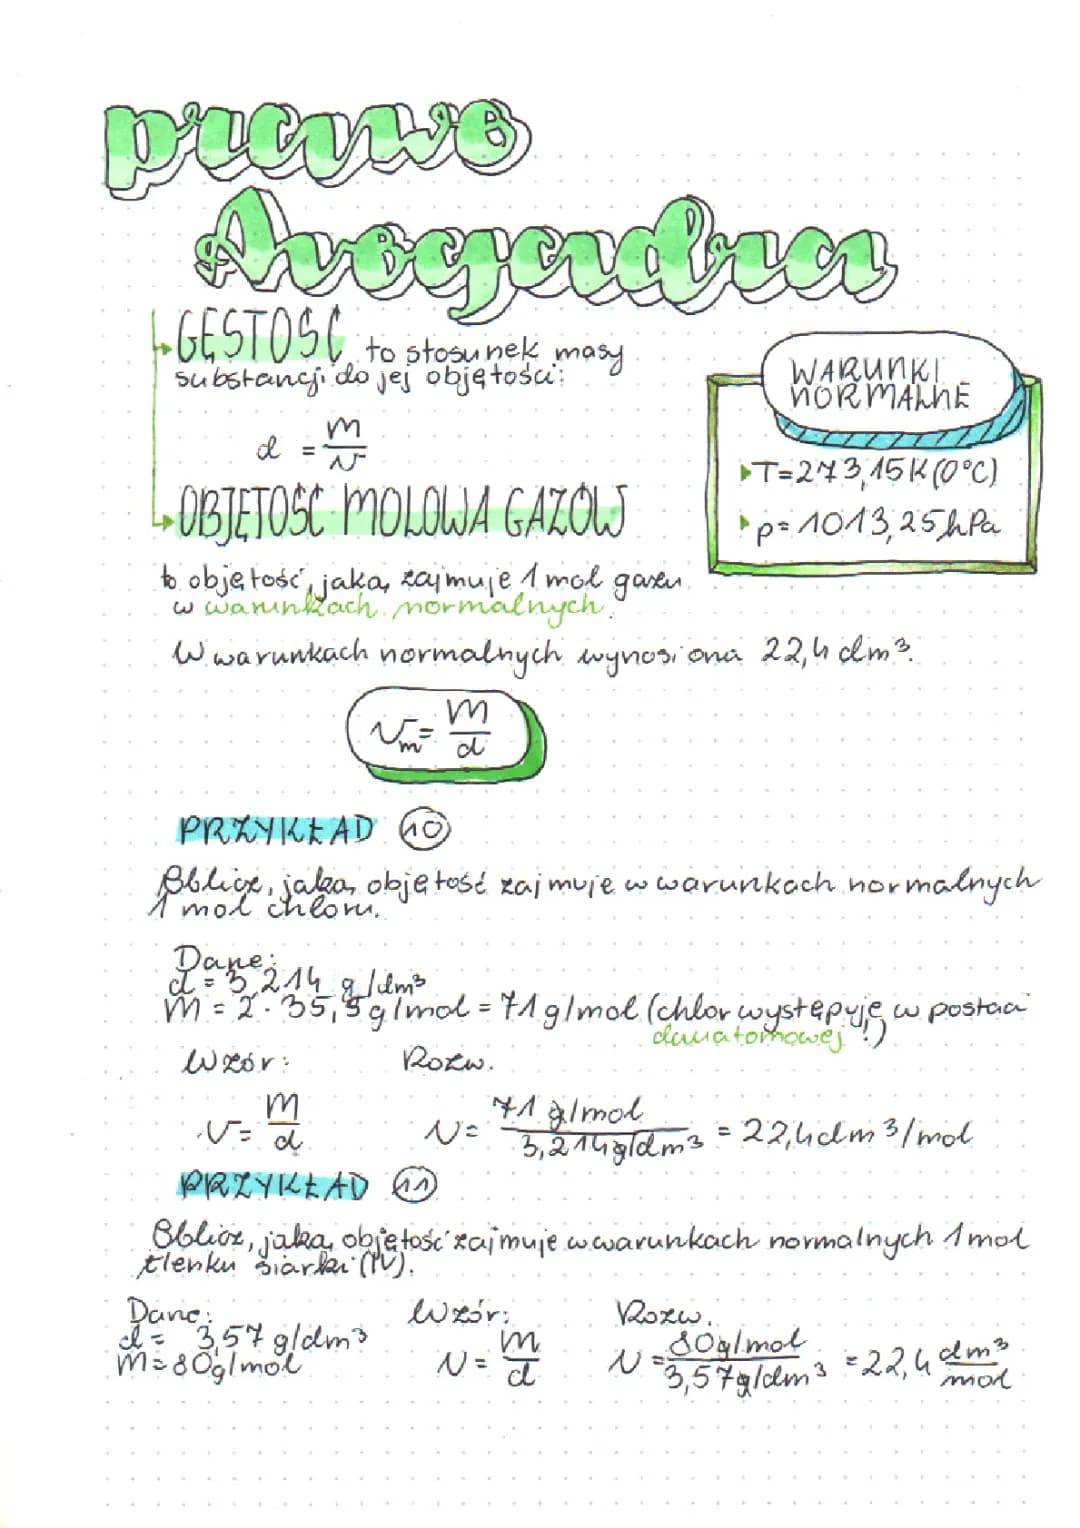 prawo
Avogadra
GĘSTOŚĆ to stosunek masy
substancji do jej objętości:
d = m/V
OBJĘTOŚĆ MOLOWA GAZÓW
WARUNKI
NORMALNE
T=273,15K (0°C)
p= 1013,25hPa
to objętość, jaką zajmuje 1 mol gazu
w warunkach normalnych.
W warunkach normalnych wynosi ona 22,4 dm³.
Vm = M/d
PRZYKŁAD 10
Oblicz, jaką objętość zajmuje w warunkach normalnych
1 mol chloru.
Dane:
d = 3,214 g/dm³
M = 2 · 35,5g/mol = 71g/mol (chlor występuje w postaci
dwuatomowej!)
Wzór: Rozw.
V = M/d V = 71 g/mol / 3,214g/dm³ = 22,4dm³/mol
PRZYKŁAD 11
Oblicz, jaką objętość zajmuje w warunkach normalnych 1 mol
tlenku siarki (IV).
Dane: Wzór: Rozw.
d = 3,57 g/dm³
M = 80g/mol V = M/d V = 80g/mol / 3,57g/dm³ = 22,4 dm³/mol